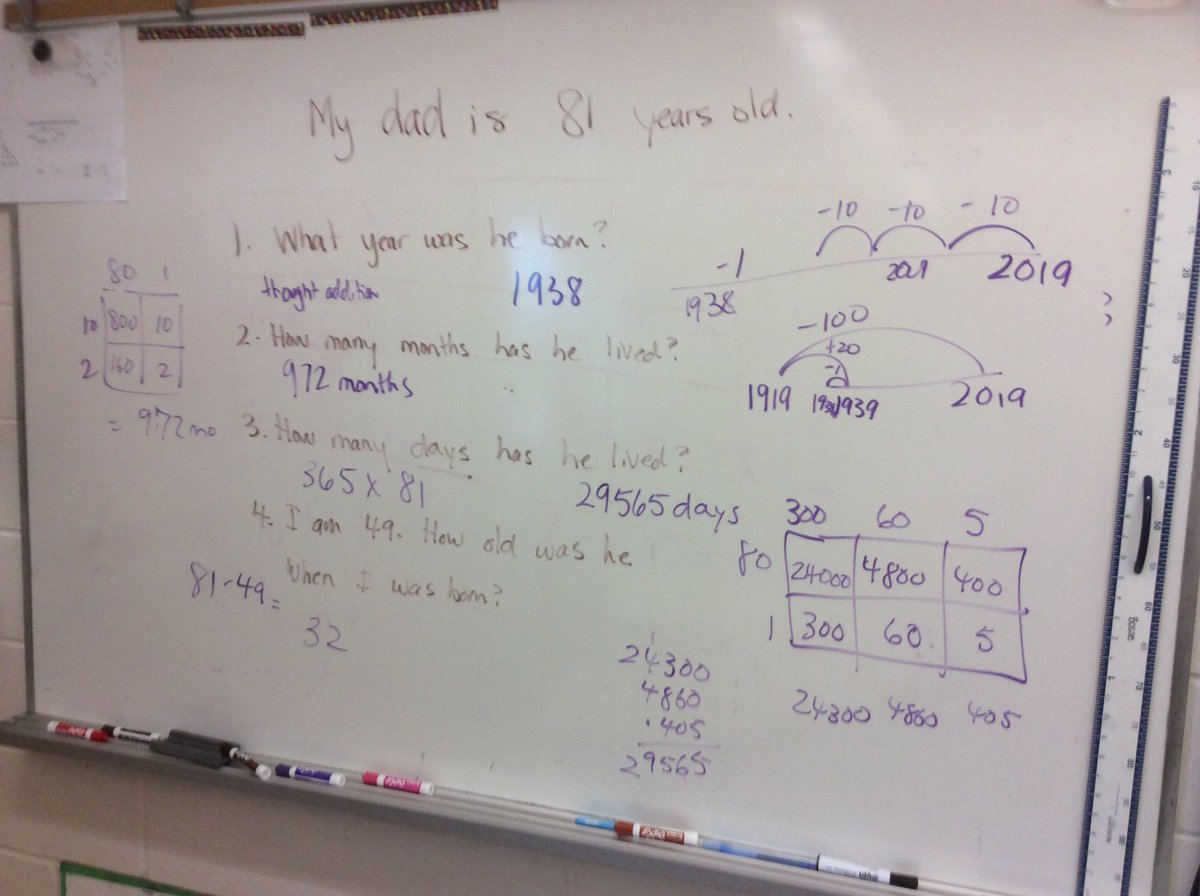 My dad is 81 years old.
1. What year was he born?
thought addition 1938
-10 -10 -10
-1
1938 2019
80 1
10 800 10
2 160 2
= 972 mo
2. How many months has he lived?
972 months
-100
+20
-1
1919 1939 2019
3. How many days has he lived?
365 x 81 29565 days
4. I am 49. How old was he
when I was born?
81-49=
32
300 60 5
80 24000 4800 400
1 300 60 5
24300 4860 405
1
24300
4860
405
29565
EXPO